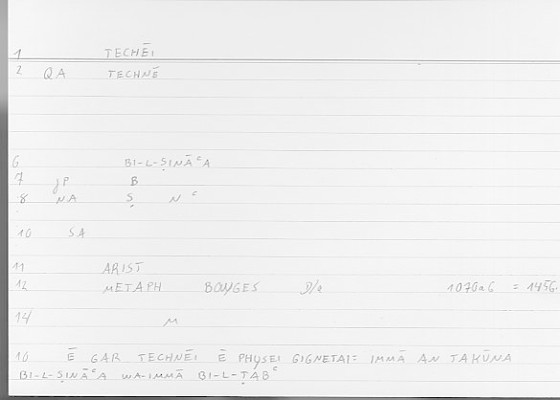 1 TECHĒI
2 QA TECHNĒ
6 BI-L-ṢINĀʿA
7 B
8 NA Ṣ N ʿ
10 SA
11 ARIST
12 METAPH BOUYGES 1070a6 = 1456.
14 M
16 Ē GAR TECHNĒI Ē PHYSEI GIGNETAI= IMMĀ AN TAKŪNA
BI-L-ṢINĀʿA WA-IMMĀ BI-L-ṬABʿ